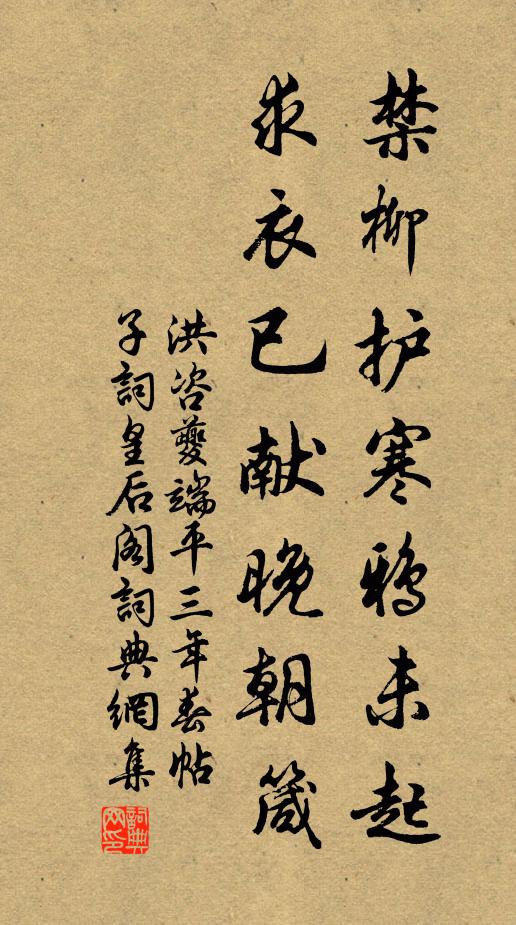 禁柳护寒鸦未起
求衣已献晚朝箴
洪咨夔端平三年春帖
子詞皇后阁詞典網集
詞典网印